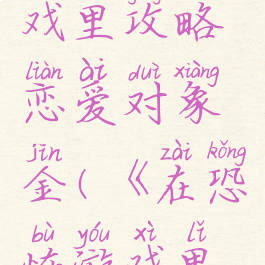 戏里攻略
liàn ài duì xiàng
恋爱对象
jīn zài kǒng
金(《在恐
bù yóu xì lǐ
怖游戏里